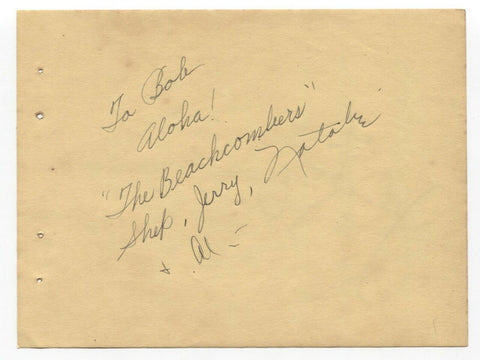 To Bob
Aloha!
"The Beachcombers"
Shep, Jerry, Natalie
+ Al -